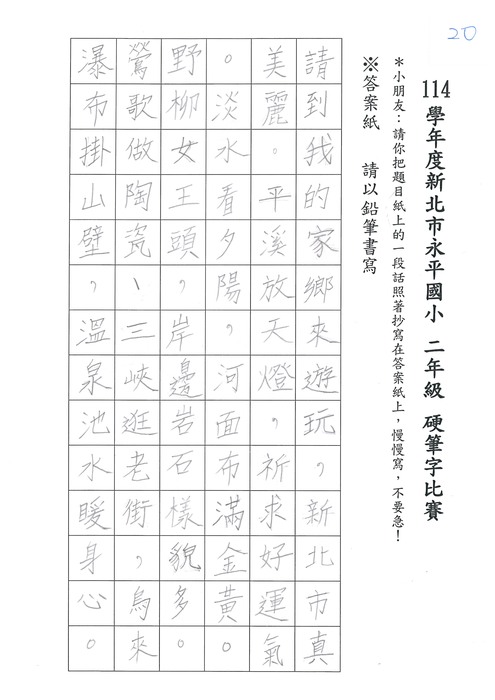 20
114學年度新北市永平國小 二年級 硬筆字比賽
*小朋友：請你把題目紙上的一段話照著抄寫在答案紙上，慢慢寫，不要急！
※答案紙 請以鉛筆書寫
請到我的家鄉來遊玩，新北市真
美麗。平溪放天燈，祈求好運氣
。淡水看夕陽，河面布滿金黃。
野柳女王頭，岸邊岩石樣貌多。
鶯歌做陶瓷、三峽逛老街，烏來
瀑布掛山壁，溫泉池水暖身心。